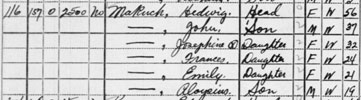 116 157 O 2500 No Makuch, Hedwig Head F W 56
——, John Son M W 37
——, Josephine D Daughter F W 32
——, Frances Daughter F W 24
——, Emily Daughter F W 21
——, Aloysius Son M W 19